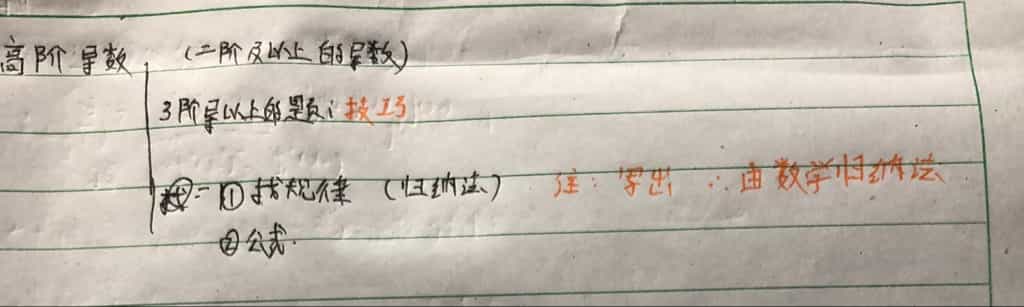 高阶导数 (二阶及以上的导数)
3阶导以上的题: 技巧
① 找规律 (归纳法) 注: 写出 ∴由数学归纳法
② 公式.